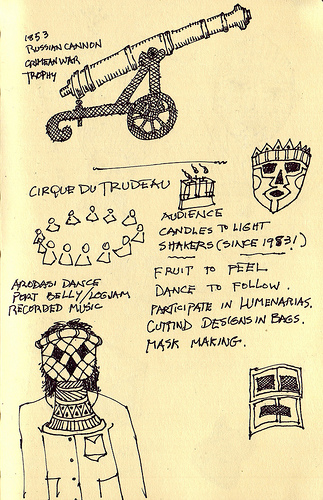 1853
RUSSIAN CANNON
CRIMEAN WAR
TROPHY
CIRQUE DU TRUDEAU
AUDIENCE
CANDLES TO LIGHT
SHAKERS (SINCE 1983!)
FRUIT TO PEEL
DANCE TO FOLLOW.
PARTICIPATE IN LUMENARIAS.
CUTTING DESIGNS IN BAGS.
MASK MAKING.
DANCE
POT BELLY/LOGJAM
RECORDED MUSIC